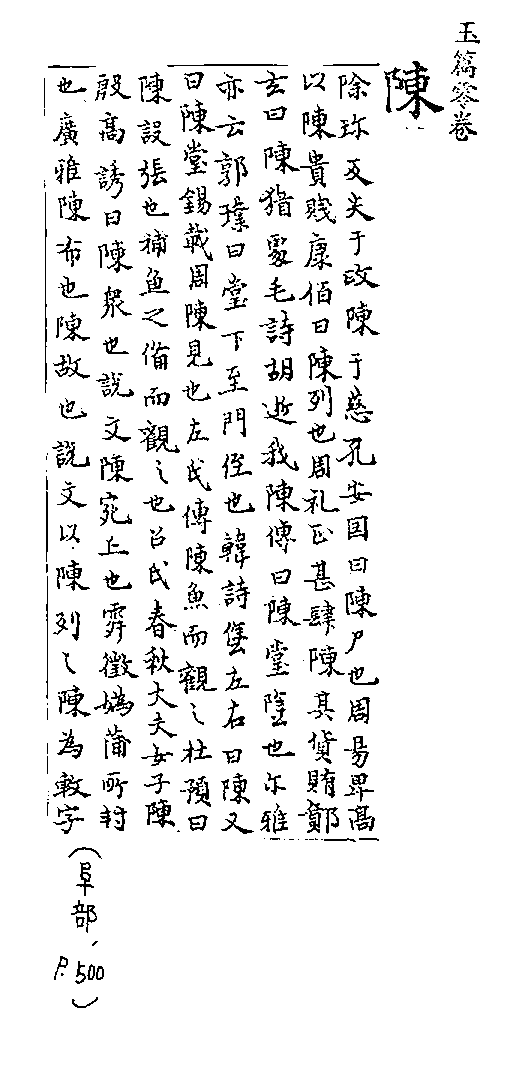 玉篇零卷
陳
除珎反夫于政陳于慈孔安国曰陳尸也周易畀高
以陳貴賤康佰曰陳列也周礼正甚肆陳其貨賄鄭
玄曰陳猶處毛詩胡逝我陳傳曰陳堂隆也尓雅
亦云郭璞曰堂下至門侄也韓詩堡左右曰陳又
曰陳堂錫載周陳見也左氏傳陳魚而觀之杜預曰
陳設張也補魚之俻而觀之也吕氏春秋丈夫女子陳
殷高誘曰陳衆也說文陳宛上也霽徵嬀蒲所封
也廣雅陳布也陳故也說文以陳列之陳為敶字
（阜部、P.500）